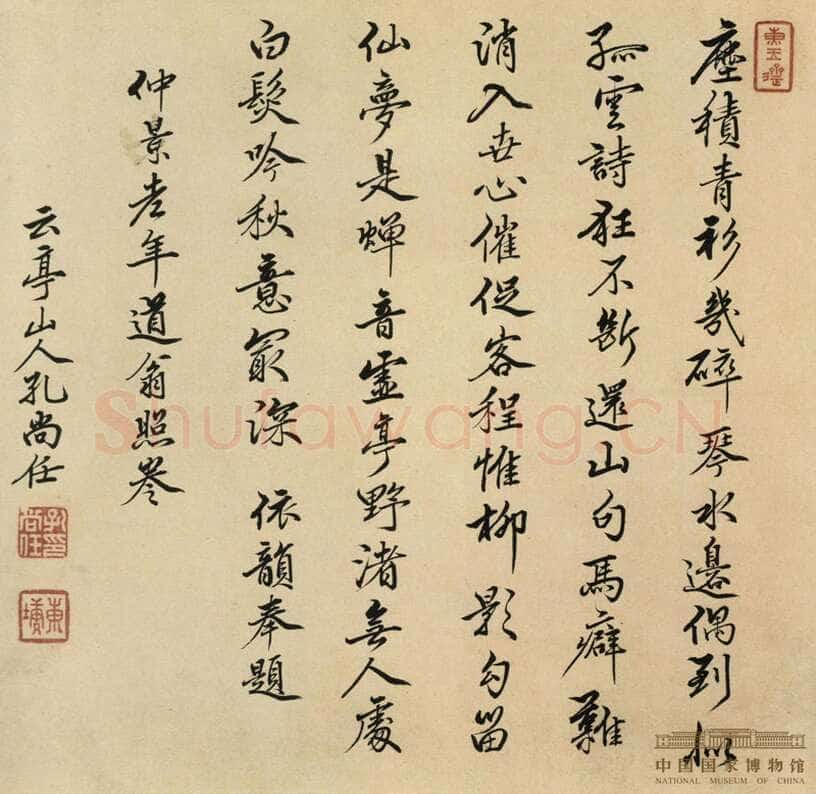 塵積青衫幾碎琴水邊偶到似
孤雲詩狂不斷還山句馬癖難
消入世心催促客程惟柳影勾留
仙夢是蟬音虛亭野渚無人處
白髮吟秋意最深 依韻奉題
仲景老年道翁照
云亭山人孔尚任
孔尚任印
東塘
Shufawang.CN
中国国家博物馆
NATIONAL MUSEUM OF CHINA